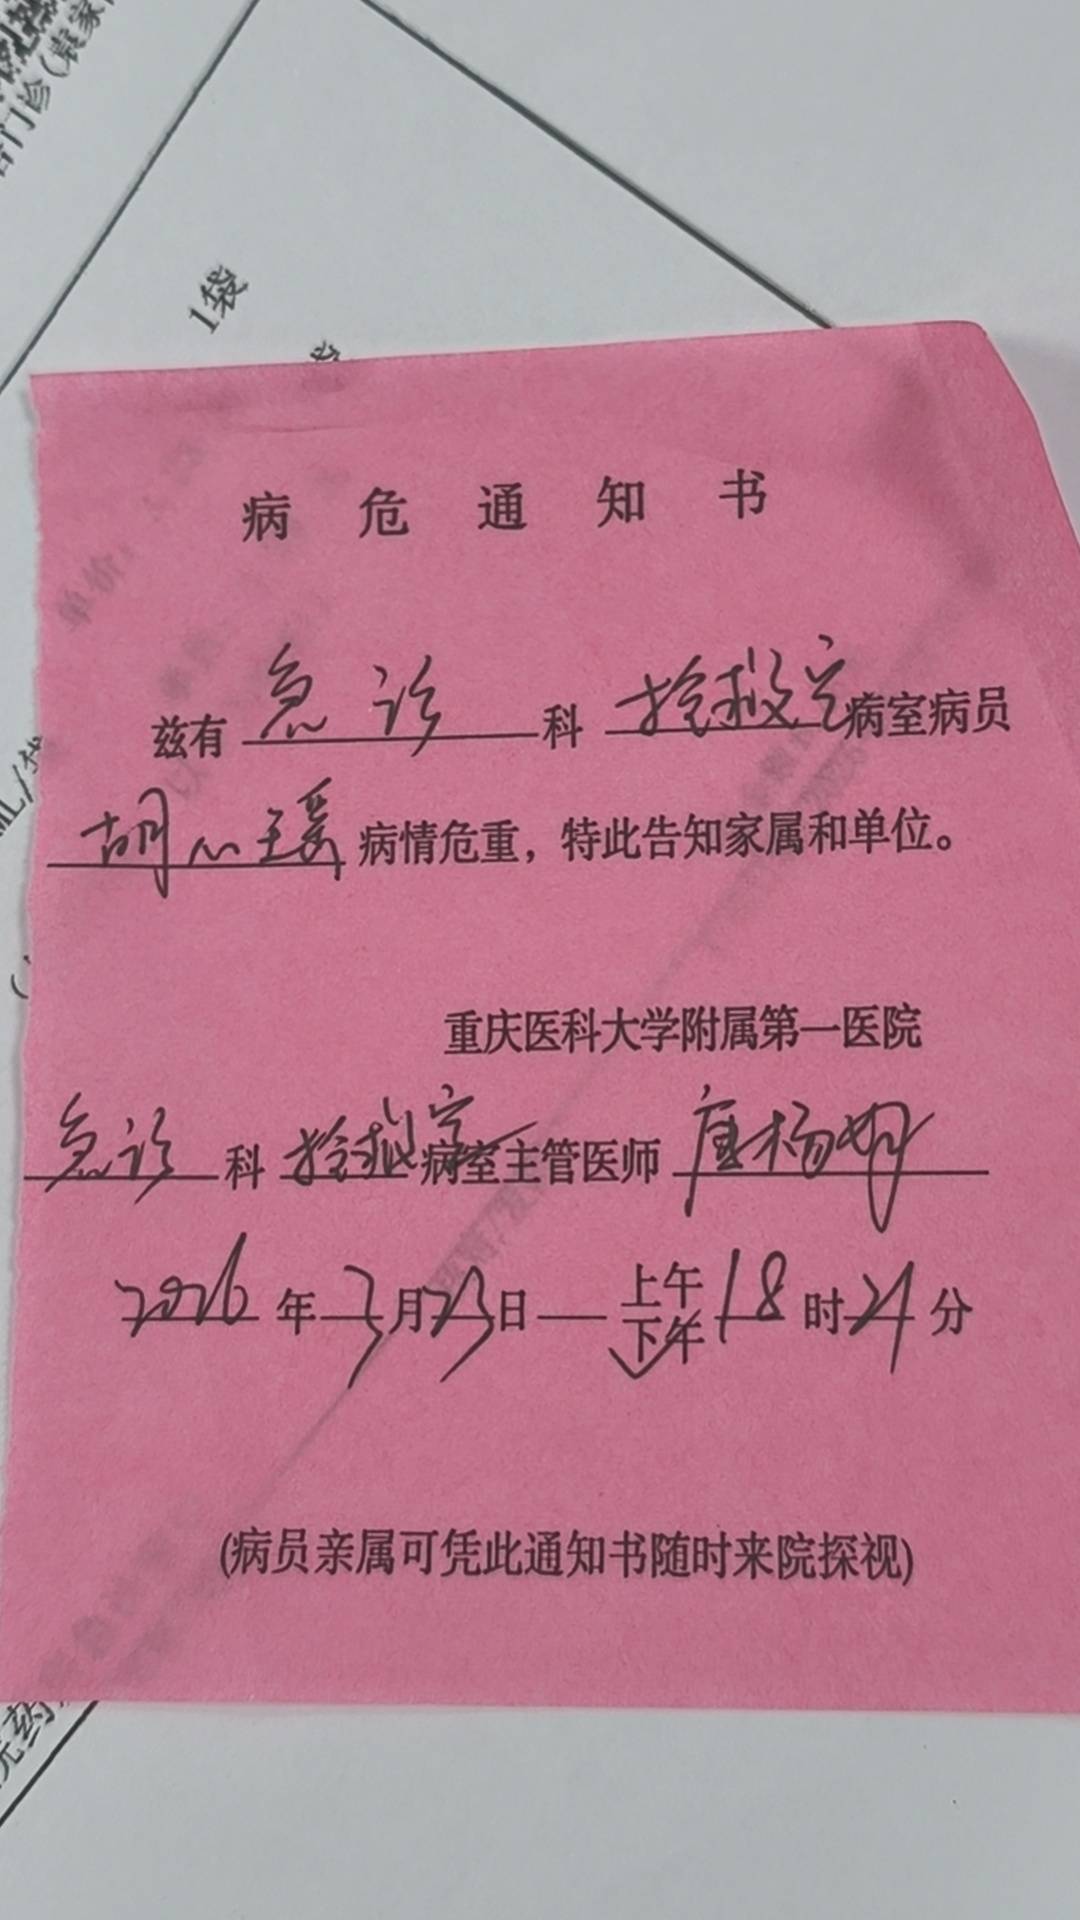 门诊
1袋
病危通知书
兹有急诊科抢救室病室病员
胡心瑶病情危重，特此告知家属和单位。
重庆医科大学附属第一医院
急诊科抢救室病室主管医师唐杨
2026年3月23日 上午
下午18时21分
(病员亲属可凭此通知书随时来院探视)